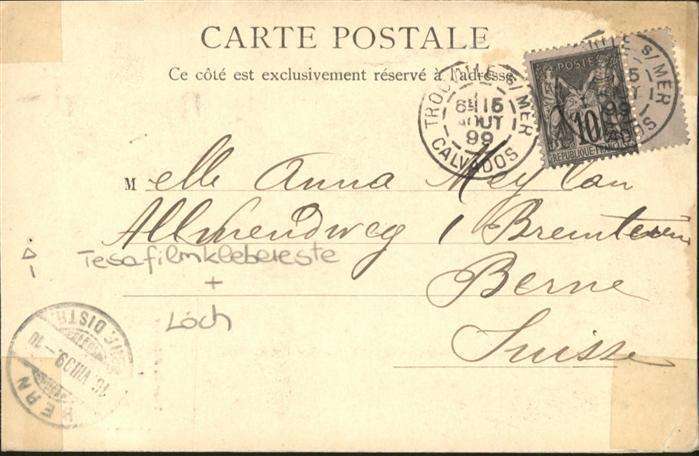 CARTE POSTALE
Ce côté est exclusivement réservé à l'adresse.
TROUVILLE S/MER
6E 15
AOUT
99
CALVADOS
POSTES
10
REPUBLIQUE FRANÇAISE
Melle Anna Meylan
Allmendweg 1 Breitenrain
Berne
Suisse
Tesafilmklebereste
+
Loch
BERN
DISTR.
VIII 99